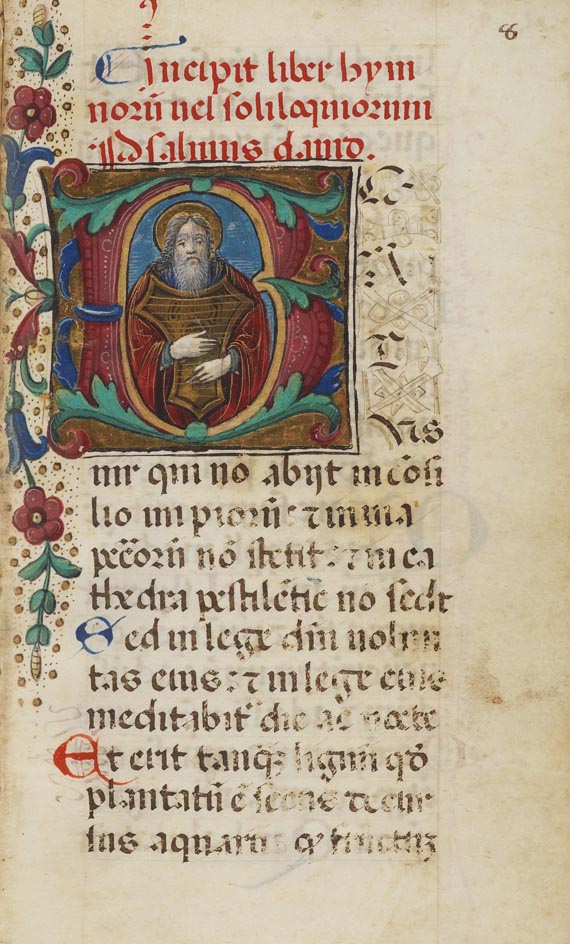 8
Incipit liber hym
norū uel soliloquiorum
Psalmus dauid.
B E
A
T
Vs
uir qui nō abijt in cōsi
lio impiorū: ⁊ in uia
pec̄orū nō stetit: ⁊ in ca
thedra pestilētie nō sedit
Sed in lege dn̄i uolun
tas eius: ⁊ in lege eius
meditabit᷑ die ac nocte
Et erit tanq̄ lignū qd̄
plantatū ē secus decur
sus aquarū qd̄ fructū